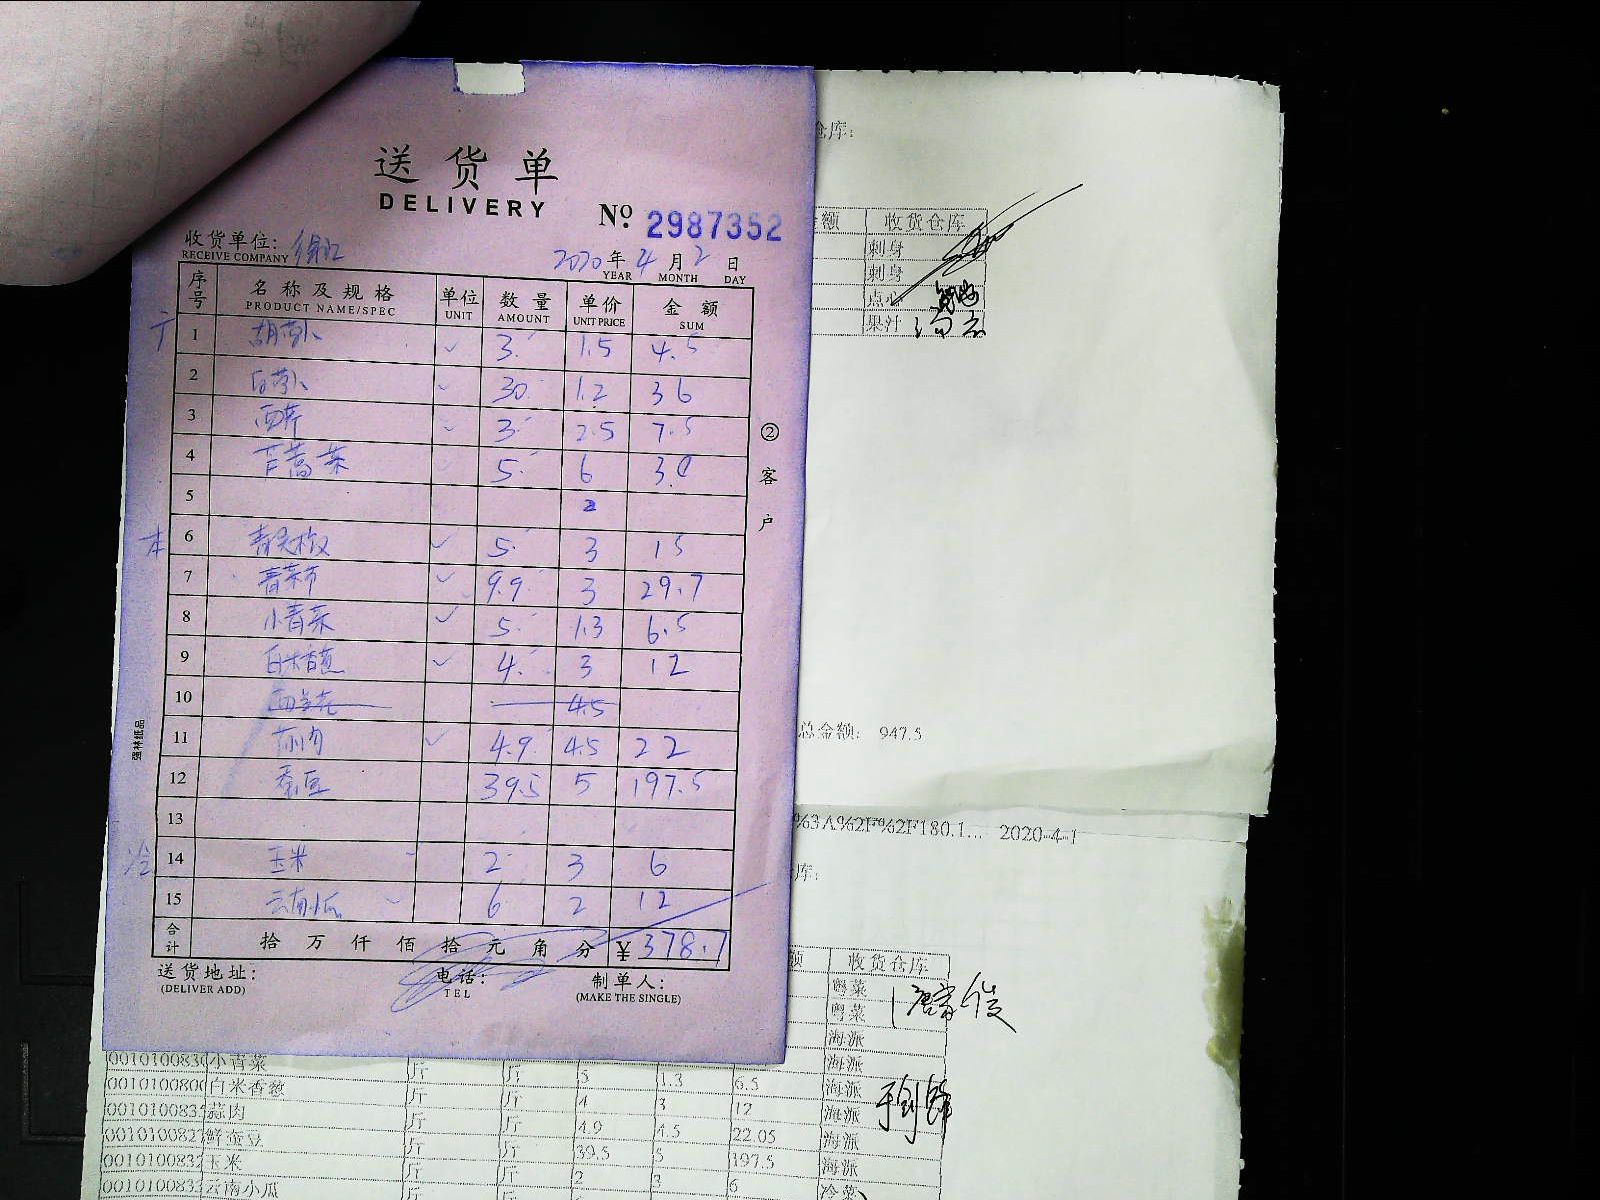 送货单
DELIVERY
№ 2987352
收货单位:
RECEIVE COMPANY
2020年4月2日
YEAR MONTH DAY
序号 名称及规格 单位 数量 单价 金额
PRODUCT NAME/SPEC UNIT AMOUNT UNIT PRICE SUM
1 胡萝卜 3 1.5 4.5
2 白萝卜 30 1.2 36
3 西芹 3 2.5 7.5
4 茼蒿菜 5 6 30
5 2
本 6 青尖椒 5 3 15
7 9.9 3 29.7
8 小青菜 5 1.3 6.5
9 白米香葱 4 3 12
10 西兰花 4.5
11 蒜肉 4.9 4.5 22
12 蚕豆 39.5 5 197.5
13
冷 14 玉米 2 3 6
15 云南小瓜 6 2 12
合计 拾 万 仟 佰 拾 元 角 分 ¥378.7
送货地址: 电话: 制单人:
(DELIVER ADD) TEL (MAKE THE SINGLE)
②客户
强林纸品
仓库:
金额 收货仓库
刺身
刺身
点心
果汁
总金额: 947.5
%3A%2F%2F180.1... 2020-4-1
库:
额 收货仓库
粤菜
粤菜
海派
海派
0010100830 小青菜 斤 斤 5 1.3 6.5 海派
0010100800 白米香葱 斤 斤 4 3 12 海派
001010083 蒜肉 斤 斤 4.9 4.5 22.05 海派
001010082 鲜蚕豆 斤 斤 39.5 5 197.5 海派
001010083 玉米 斤 斤 2 3 6 冷菜
001010083 云南小瓜